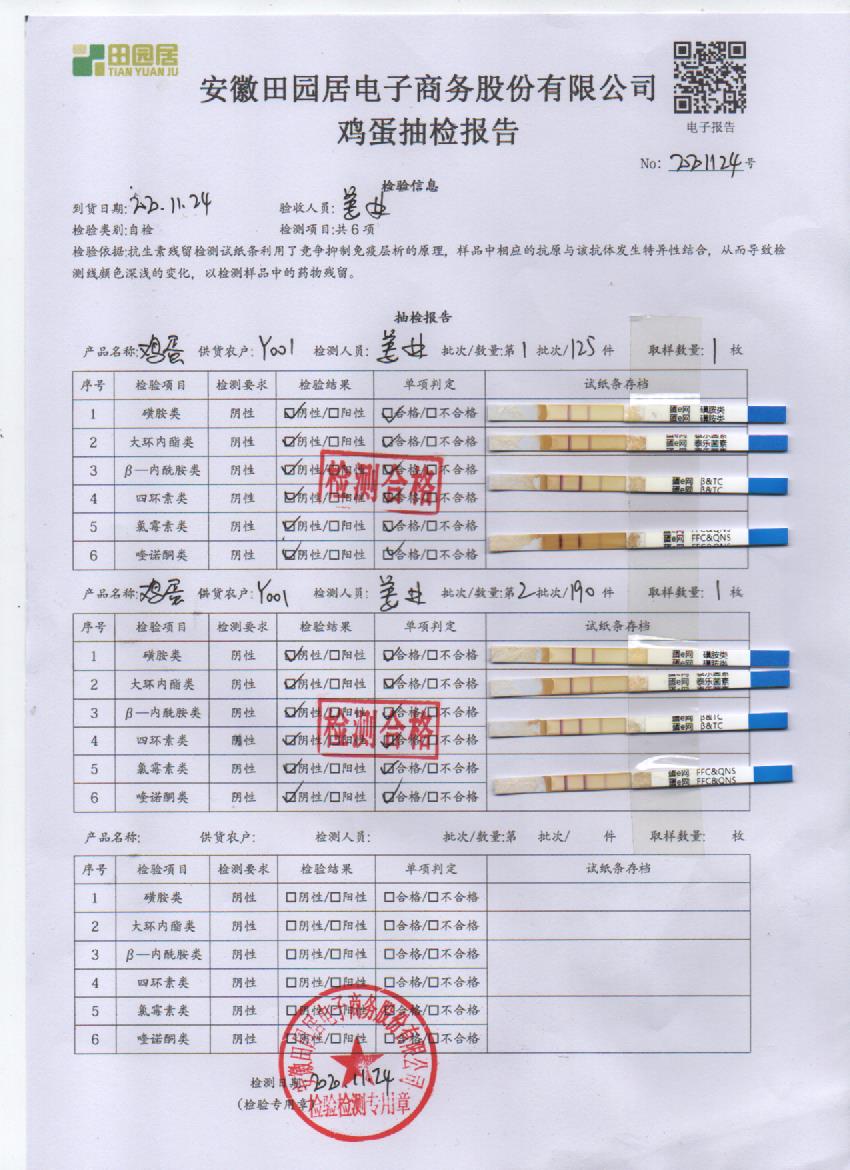 田园居
TIAN YUAN JU
安徽田园居电子商务股份有限公司
鸡蛋抽检报告
电子报告
No: 20201124号
检验信息
到货日期: 2020.11.24 验收人员: 姜
检验类别:自检 检测项目:共6项
检验依据:抗生素残留检测试纸条利用了竞争抑制免疫层析的原理，样品中相应的抗原与该抗体发生特异性结合，从而导致检
测线颜色深浅的变化，以检测样品中的药物残留。
抽检报告
产品名称:鸡蛋 供货农户:Y001 检测人员:姜 批次/数量:第1批次/125件 取样数量:1枚
序号 检验项目 检测要求 检验结果 单项判定 试纸条存档
1 磺胺类 阴性 ☑阴性/□阳性 ☑合格/□不合格 蛋e网 磺胺类
蛋e网 磺胺类
2 大环内酯类 阴性 ☑阴性/□阳性 ☑合格/□不合格 蛋e网 泰乐菌素
3 β—内酰胺类 阴性 ☑阴性/□阳性 ☑合格/□不合格 蛋e网 β&TC
蛋e网 β&TC
4 四环素类 阴性 ☑阴性/□阳性 ☑合格/□不合格
5 氯霉素类 阴性 ☑阴性/□阳性 ☑合格/□不合格 蛋e网 FFC&QNS
6 喹诺酮类 阴性 ☑阴性/□阳性 ☑合格/□不合格
检测合格
产品名称:鸡蛋 供货农户:Y001 检测人员:姜 批次/数量:第2批次/190件 取样数量:1枚
序号 检验项目 检测要求 检验结果 单项判定 试纸条存档
1 磺胺类 阴性 ☑阴性/□阳性 ☑合格/□不合格 蛋e网 磺胺类
蛋e网 磺胺类
2 大环内酯类 阴性 ☑阴性/□阳性 ☑合格/□不合格 蛋e网 泰乐菌素
3 β—内酰胺类 阴性 ☑阴性/□阳性 ☑合格/□不合格 蛋e网 β&TC
蛋e网 β&TC
4 四环素类 阴性 ☑阴性/□阳性 ☑合格/□不合格
5 氯霉素类 阴性 ☑阴性/□阳性 ☑合格/□不合格 蛋e网 FFC&QNS
蛋e网 FFC&QNS
6 喹诺酮类 阴性 ☑阴性/□阳性 ☑合格/□不合格
检测合格
产品名称: 供货农户: 检测人员: 批次/数量:第 批次/ 件 取样数量: 枚
序号 检验项目 检测要求 检验结果 单项判定 试纸条存档
1 磺胺类 阴性 □阴性/□阳性 □合格/□不合格
2 大环内酯类 阴性 □阴性/□阳性 □合格/□不合格
3 β—内酰胺类 阴性 □阴性/□阳性 □合格/□不合格
4 四环素类 阴性 □阴性/□阳性 □合格/□不合格
5 氯霉素类 阴性 □阴性/□阳性 □合格/□不合格
6 喹诺酮类 阴性 □阴性/□阳性 □合格/□不合格
安徽田园居电子商务股份有限公司
检测日期: 2020.11.24
(检验专用章)
检验检测专用章